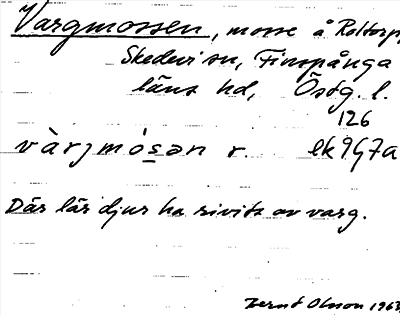 Vargmossen, mosse å Roltorp,
Skedevi sn, Finspånga
läns hd, Östg. l.
126
vàrjmó̱sən r. ek 9G7a
Där lär djur ha rivits av varg.
Bernt Olsson 1963